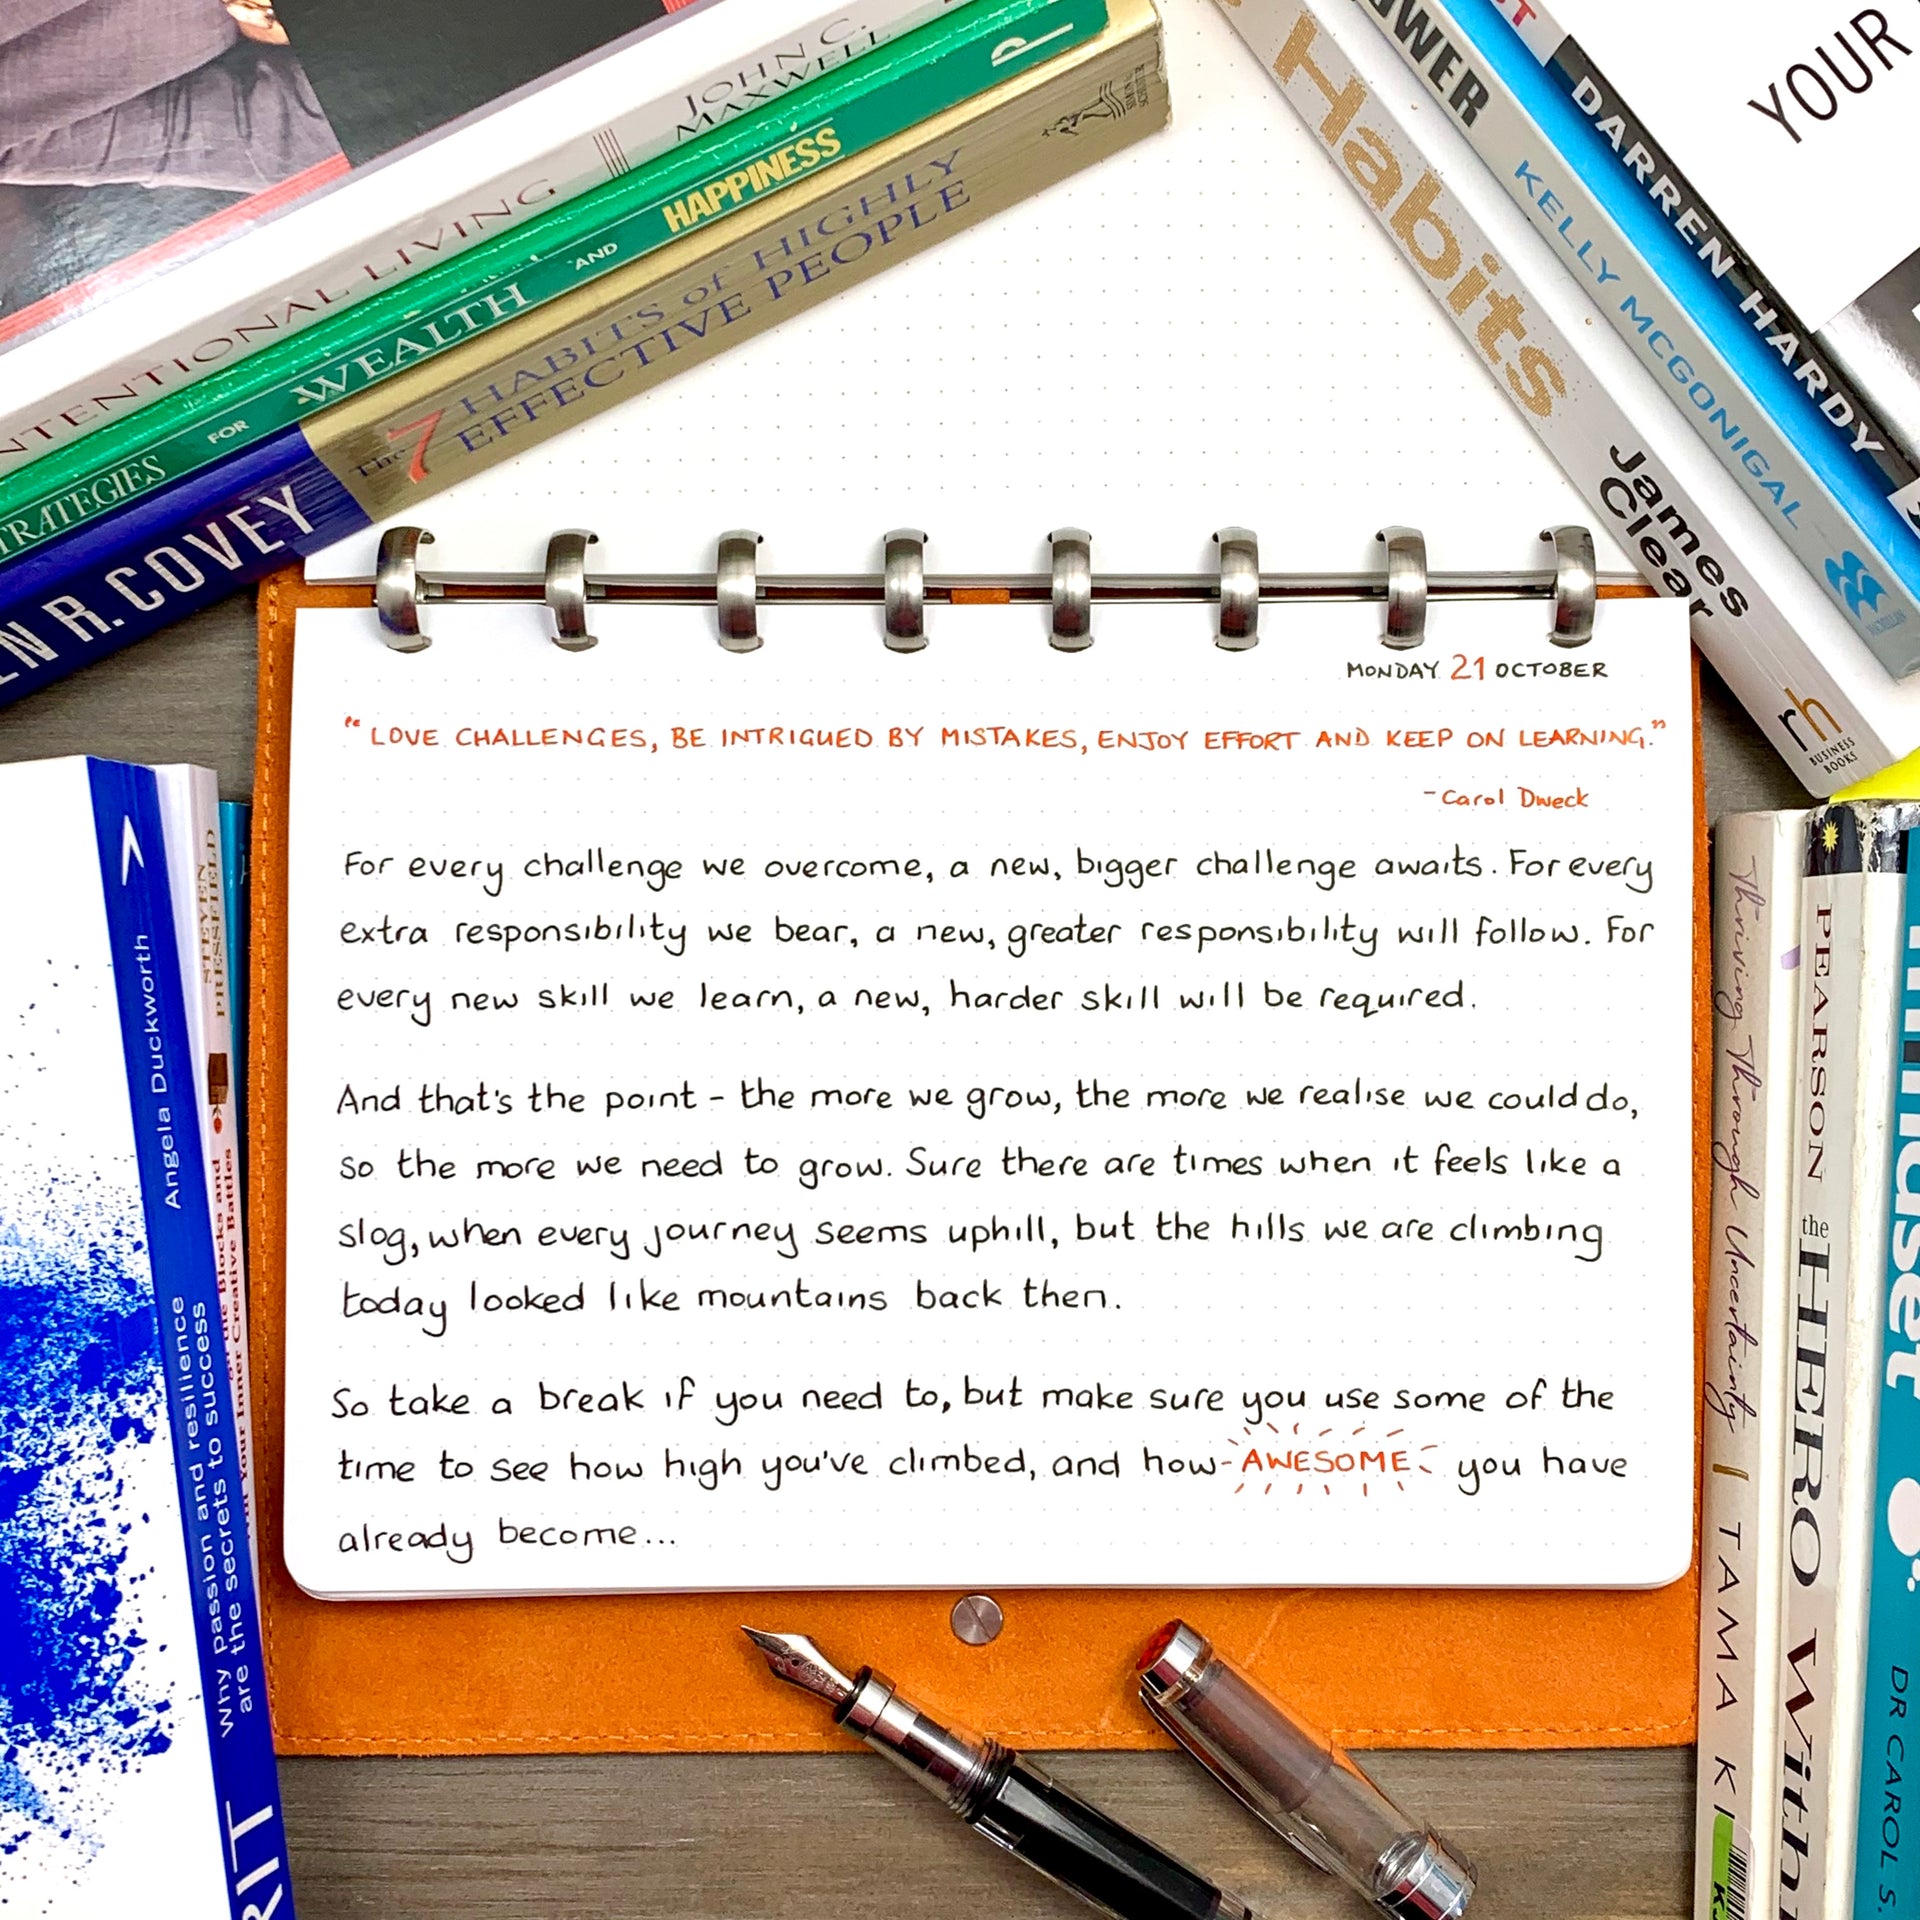 JOHN C.
MAXWELL
NTENTIONAL LIVING
TRATEGIES FOR WEALTH AND HAPPINESS
The 7 HABITS of HIGHLY
EFFECTIVE PEOPLE
EN R. COVEY
Habits
James
Clear
rh
BUSINESS
BOOKS
OWER
KELLY MCGONIGAL
MACMILLAN
DARREN HARDY
YOUR
MONDAY 21 OCTOBER
"LOVE CHALLENGES, BE INTRIGUED BY MISTAKES, ENJOY EFFORT AND KEEP ON LEARNING."
- Carol Dweck
For every challenge we overcome, a new, bigger challenge awaits. For every
extra responsibility we bear, a new, greater responsibility will follow. For
every new skill we learn, a new, harder skill will be required.
And that's the point - the more we grow, the more we realise we could do,
so the more we need to grow. Sure there are times when it feels like a
slog, when every journey seems uphill, but the hills we are climbing
today looked like mountains back then.
So take a break if you need to, but make sure you use some of the
time to see how high you've climbed, and how AWESOME you have
already become...
Angela Duckworth
Why passion and resilience
are the secrets to success
RIT
STEVEN
PRESSFIELD
the Blocks and
Your Inner Creative Battles
Thriving Through Uncertainty
TAMA KI
PEARSON
the HERO With
mindset
DR CAROL S.